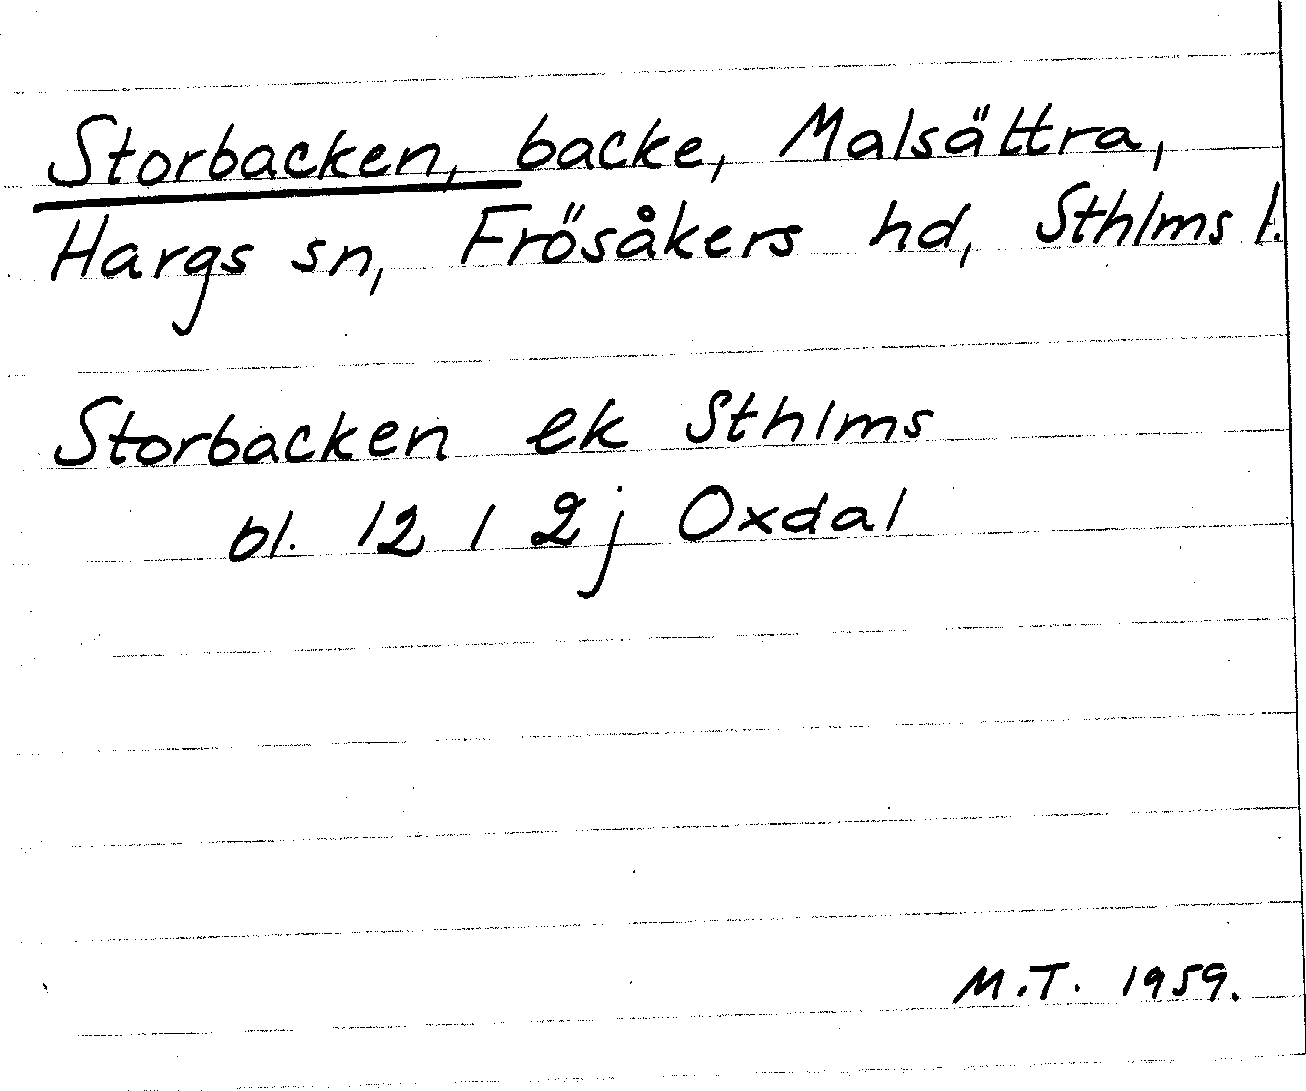 Storbacken, backe, Malsättra,
Hargs sn, Frösåkers hd, Sthlms l.
Storbacken ek Sthlms
bl. 12 I 2j Oxdal
M.T. 1959.